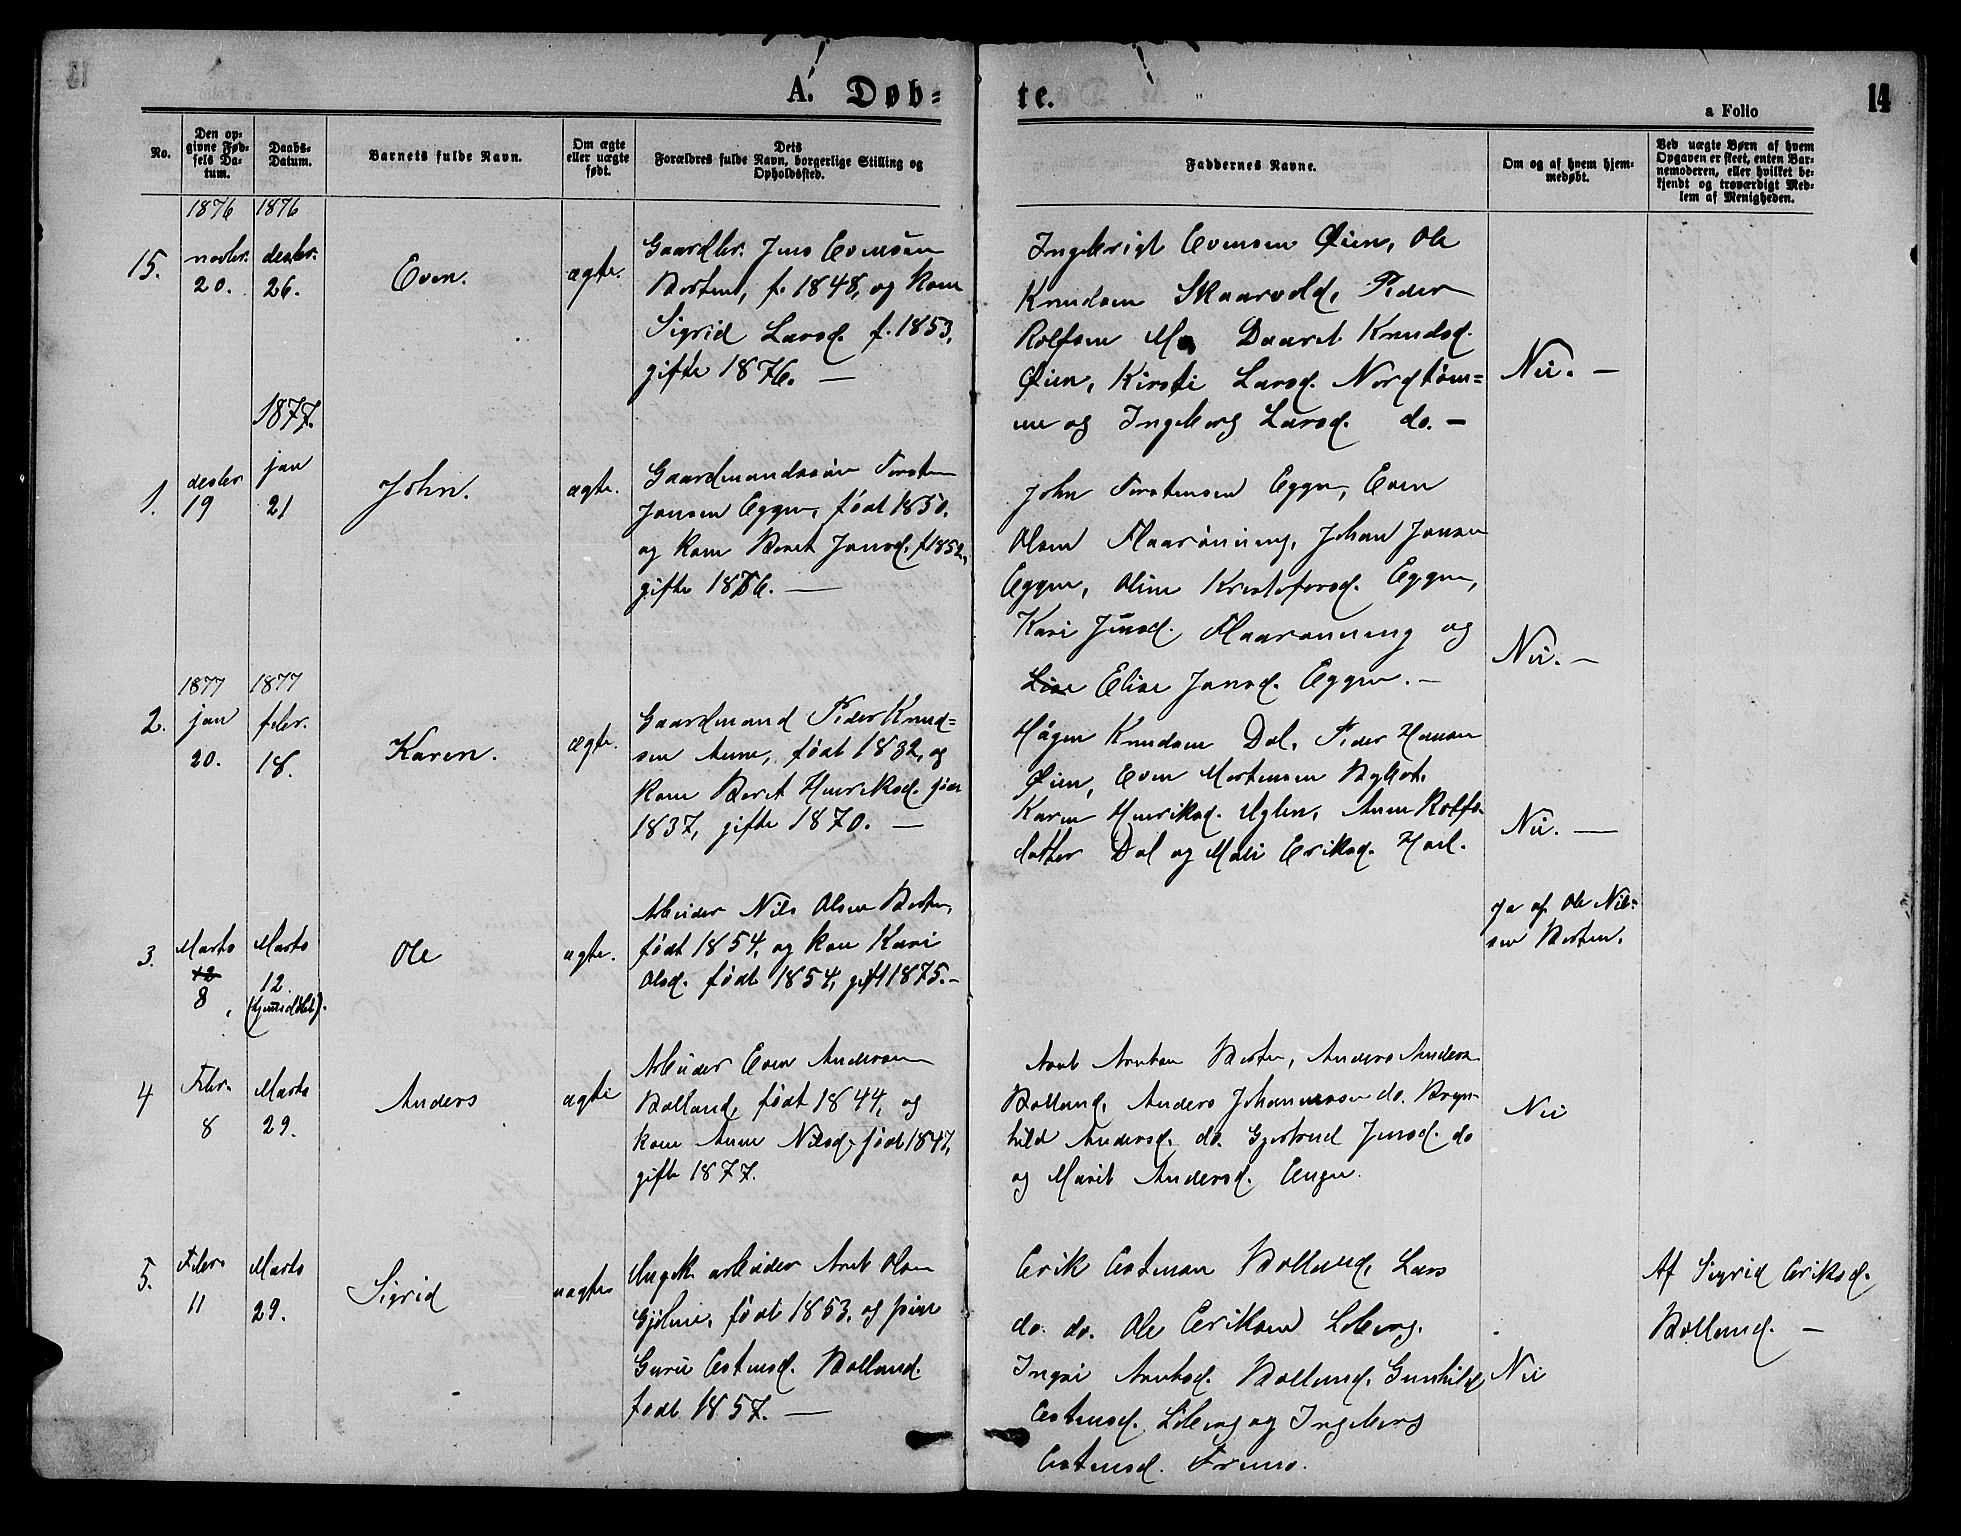 A. Døb=
te.
a Folio
14
No.
Den op=
givne Fød=
sels Da=
tum.
Daabs=
Datum.
Barnets fulde Navn.
Om ægte
eller uægte
født.
Dets
Forældres fulde Navn, borgerlige Stilling og
Opholdssted.
Faddernes Navne.
Om og af hvem hjem=
medøbt.
Ved uægte Børn af hvem
Opgaven er skeet, enten Bar=
nemoderen, eller hvilket be=
kjendt og troværdigt Med=
lem af Menigheden.
1876 1876
15. novbr. 20. desbr. 26.
Even.
ægte.
Gaardbr. Jens Evensen
Bosten, f. 1848, og kone
Sigrid Larsd. f. 1853,
gifte 1876. —
Ingebrigt Evensen Øien, Ole
Knudsen Skaarvold, Peder
Rolfsen Mo, Daaret Knudsd.
Øien, Kirsti Larsd. Nordtøm=
me og Ingeborg Larsd. do. —
Nei. —
1877.
1. desbr 19 jan 21
John.
ægte.
Gaardmandssøn Torsten
Jonsen Eggen, født 1850.
og kone Beret Jonsd. f 1852,
gifte 1876. —
John Torstensen Eggen, Even
Olsen Flaarønning, Johan Jonsen
Eggen, Oline Kristofersd. Eggen,
Kari Jensd. Flaarønning og
Lise Elise Jonsd. Eggen. —
Nei. —
1877 1877
2. jan 20. febr. 18.
Karen.
ægte.
Gaardmand Peder Knud=
sen Aune, født 1832, og
kone Beret Henriksd. født
1837, gifte 1870. —
Hågen Knudsen Dal, Peder Hansen
Øien, Even Mortensen
Karen Henriksd. Uglen, Anne Rolfs=
datter Dal og Mali Eriksd.
Nei. —
3. Marts 12 8 Marts 12. (hjemmedøbt).
Ole
ægte.
Arbeider Nils Olsen Bosten,
født 1854, og kone Kari
Olsd. født 1854, gift 1875. —
ja af Ole Nil=
sen Bosten.
4 Febr. 8 Marts 29.
Anders
ægte
Arbeider Even Andersen
Bolland, født 1844, og
kone Anne Nilsd, født 1847,
gifte 1877.
Arnt Arntsen Bosten, Anders Anders.
Bolland, Anders Johannessen do. Bryn-
hild Andersd. do. Gjertrud Jensd. do
og Marit Andersd. Engen.
Nei
5. Febr. 11 Marts 29.
Sigrid
uægte
Ungk. arbeider Arnt Olsen
Gjølme, født 1853, og pige
Guru Estensd. Bolland.
født 1857. —
Erik Estensen Bolland, Lars
do. do. Ole Eriksen Løberg.
Ingri Arntsd. Bolland, Gunhild
Estensd. Løberg og Ingeborg
Estensd. Fremo.
Nei
Af Sigrid Eriksd.
Bolland. —